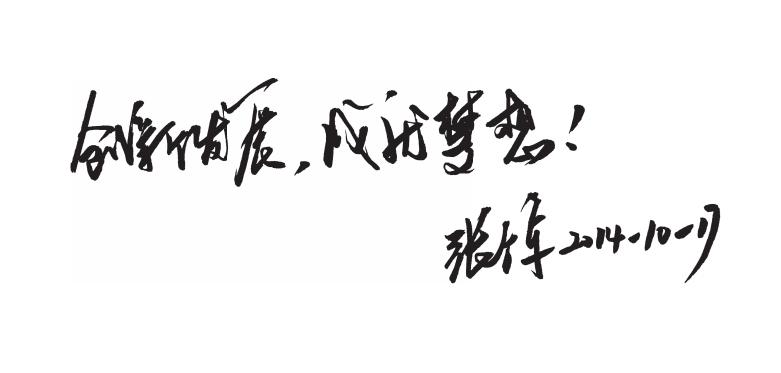 创新发展,成就梦想!
张 2014-10-17